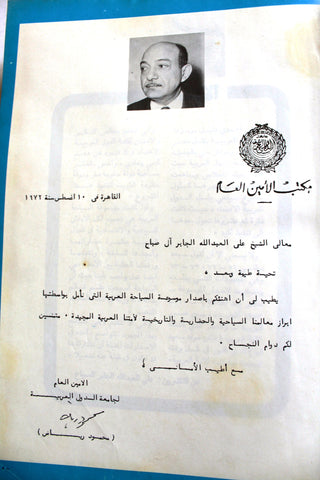 مكتب الأمين العام
القاهرة فى ١٠ اغسطس سنة ١٩٧٢
معالى الشيخ على العبدالله الجابر آل صباح
تحية طيبة وبعد ،
يطيب لى أن اهنئكم باصدار موسوعة السياحة العربية التى نأمل بواسطتها
ابراز معالمنا السياحية والحضارية والتاريخية لأمتنا العربية المجيدة . متمنين
لكم دوام النجاح .
مع أطيب الأمانى ،
الامين العام
لجامعة الدول العربية
( محمود رياض )